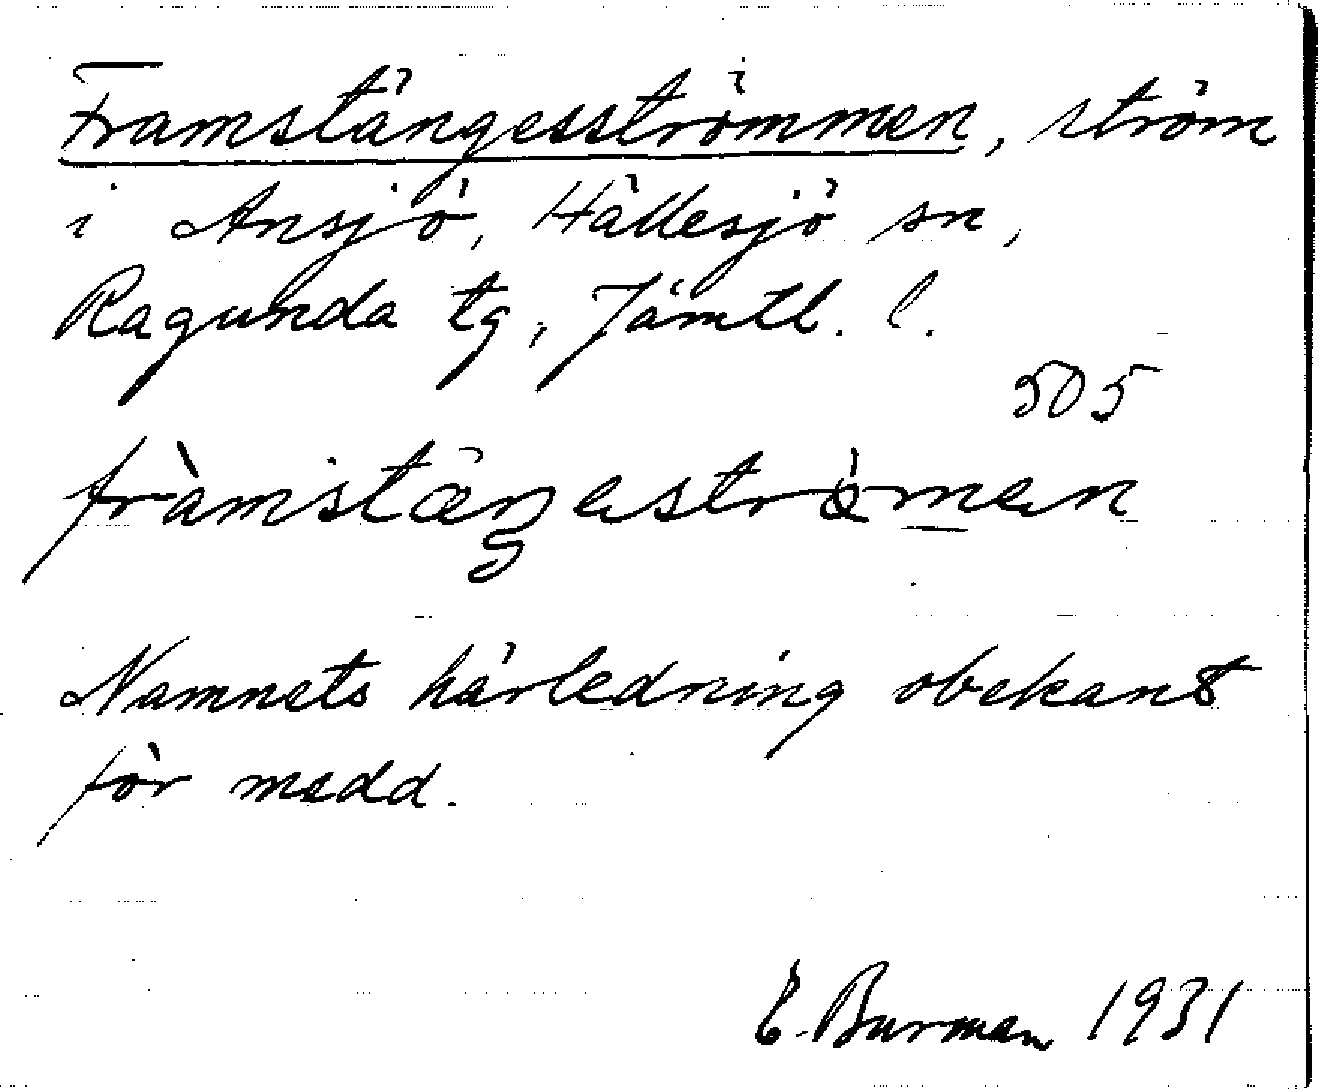 Framstängesströmmen, ström
i Ansjö, Hällesjö sn,
Ragunda tg, Jämtl. l.
505
Namnets härledning obekant
för medd.
E. Burman 1931